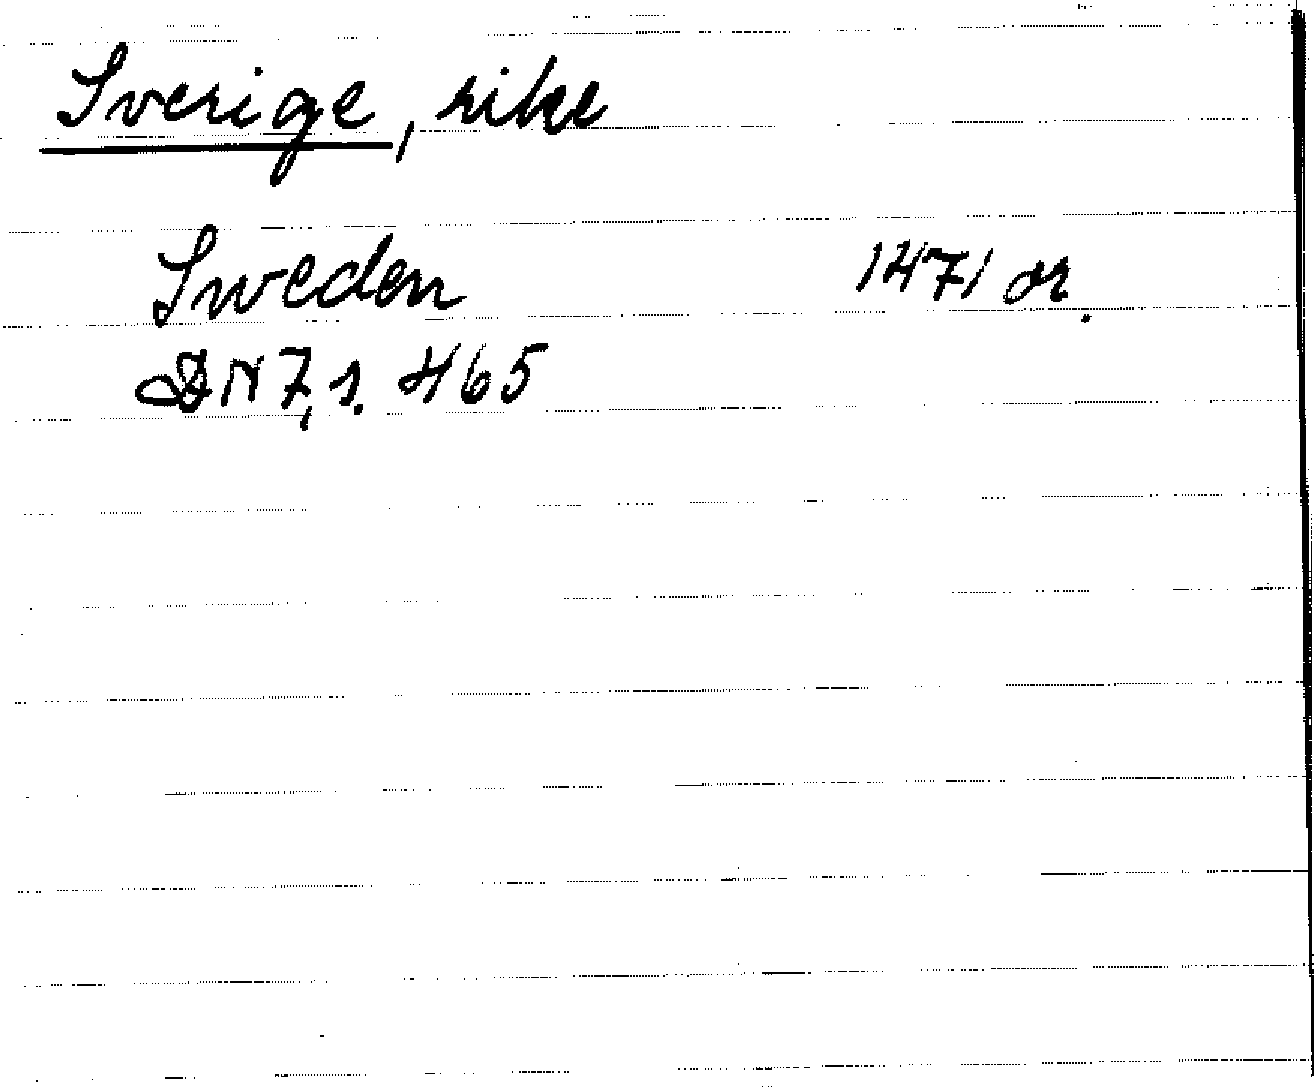 Sverige, rike
Sweden 1471 or.
DN 7, s. 465